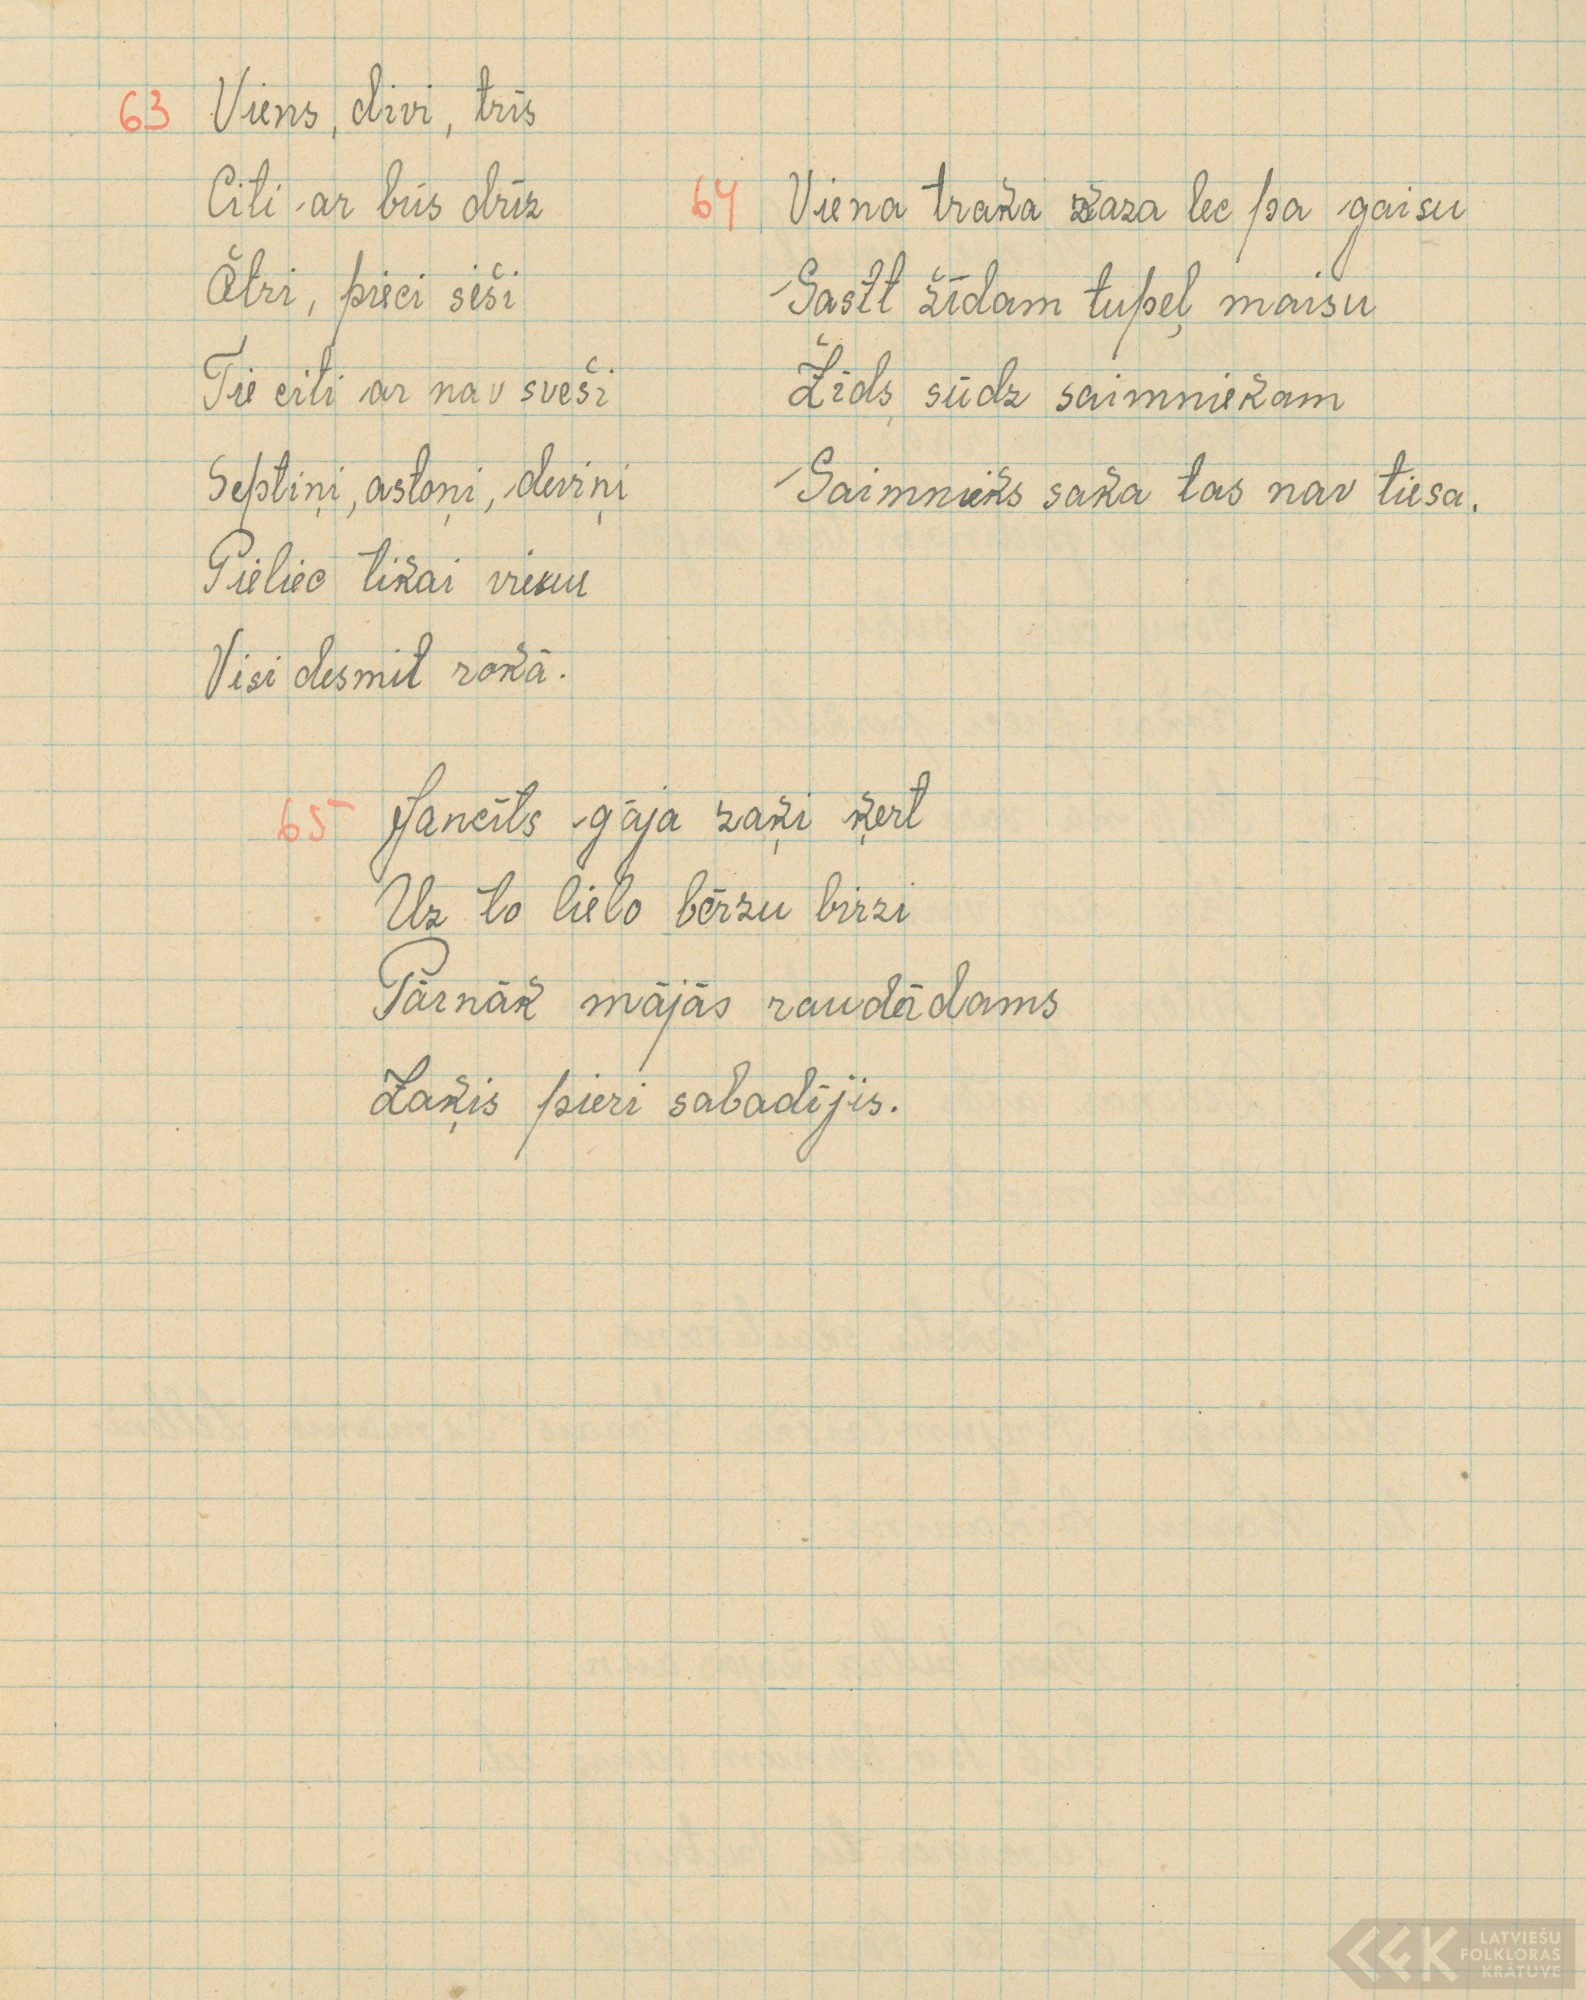 63 Viens, divi, trīs
Citi ar būs drīz
Četri, pieci seši
Tie citi ar nav sveši
Septiņi, astoņi, deviņi
Pieliec tikai vienu
Visi desmit rokā.
64 Viena traka kaza lec pa gaisu
Sastt žīdam tupeļ maisu
Žīds sūdz saimniekam
Saimnieks saka tas nav tiesa.
65 Jancīts gāja zaķi ķert
Uz to lielo bērzu birzi
Pārnāk mājās raudādams
Zaķis pieri sabadījis.
LATVIEŠU
FOLKLORAS
KRĀTUVE